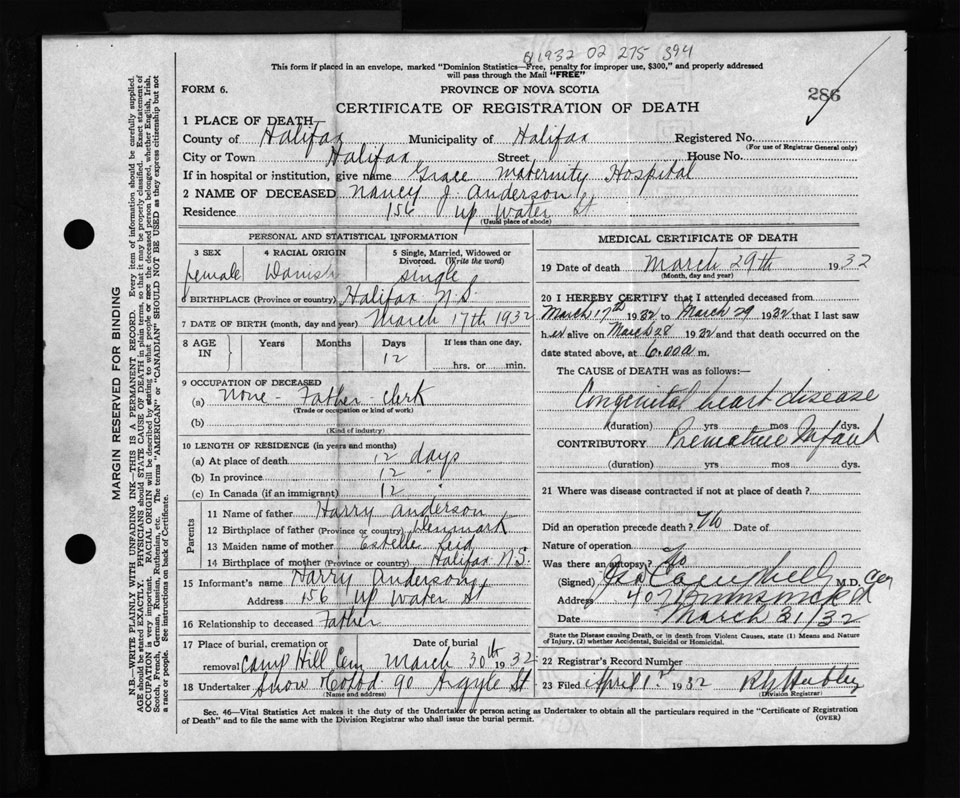 1932 02 275 394
This form if placed in an envelope, marked "Dominion Statistics—Free, penalty for improper use, $300," and properly addressed
will pass through the Mail "FREE"
FORM 6.
PROVINCE OF NOVA SCOTIA
286
CERTIFICATE OF REGISTRATION OF DEATH
1 PLACE OF DEATH
County of Halifax Municipality of Halifax Registered No.
(For use of Registrar General only)
City or Town Halifax Street House No.
If in hospital or institution, give name Grace Maternity Hospital
2 NAME OF DECEASED Nancy J. Anderson
Residence 156 Up Water St
(Usual place of abode)
PERSONAL AND STATISTICAL INFORMATION
3 SEX 4 RACIAL ORIGIN 5 Single, Married, Widowed or
Divorced. (Write the word)
female Danish single
6 BIRTHPLACE (Province or country) Halifax N.S.
7 DATE OF BIRTH (month, day and year) March 17th 1932
8 AGE IN Years Months Days If less than one day,
12 hrs. or min.
9 OCCUPATION OF DECEASED
(a) None - Father - clerk
(Trade or occupation or kind of work)
(b)
(Kind of industry)
10 LENGTH OF RESIDENCE (in years and months)
(a) At place of death 12 days
(b) In province 12 "
(c) In Canada (if an immigrant) 12 "
Parents
11 Name of father Harry Anderson
12 Birthplace of father (Province or country) Denmark
13 Maiden name of mother Estelle Reid
14 Birthplace of mother (Province or country) Halifax N.S.
15 Informant's name Harry Anderson
Address 156 Up Water St
16 Relationship to deceased Father
17 Place of burial, cremation or Date of burial
removal Camp Hill Cem March 30th 1932
18 Undertaker Snow & Co Ltd. 90 Argyle St
(Name and address)
MEDICAL CERTIFICATE OF DEATH
19 Date of death March 29th 1932
(Month, day and year)
20 I HEREBY CERTIFY that I attended deceased from
March 17th 1932 to March 29 1932 that I last saw
h er alive on March 28 1932 and that death occurred on the
date stated above, at 6.00 a m.
The CAUSE of DEATH was as follows:—
Congenital heart disease
(duration) yrs mos dys.
CONTRIBUTORY Premature Infant
(duration) yrs mos dys.
21 Where was disease contracted if not at place of death?
Did an operation precede death? No Date of
Nature of operation
Was there an autopsy? No
(Signed) Campbell M.D.
Address 407 Brunswick
Date March 31/32
State the Disease causing Death, or in death from Violent Causes, state (1) Means and Nature
of Injury, (2) whether Accidental, Suicidal or Homicidal.
22 Registrar's Record Number
23 Filed April 1st 1932
(Division Registrar)
Sec. 46—Vital Statistics Act makes it the duty of the Undertaker or person acting as Undertaker to obtain all the particulars required in the "Certificate of Registration
of Death" and to file the same with the Division Registrar who shall issue the burial permit.
(OVER)
MARGIN RESERVED FOR BINDING
N.B.—WRITE PLAINLY WITH UNFADING INK—THIS IS A PERMANENT RECORD. Every item of information should be carefully supplied.
AGE should be stated EXACTLY. PHYSICIANS should STATE CAUSE OF DEATH in plain terms, so that it may be properly classified. Exact statement of
OCCUPATION is very important. RACIAL ORIGIN will be described by stating to what people or race the deceased person belonged, whether English, Irish,
Scotch, French, German, Russian, Ruthenian, etc. The terms "AMERICAN" or "CANADIAN" SHOULD NOT BE USED as they express citizenship but not
a race or people. See instructions on back of Certificate.